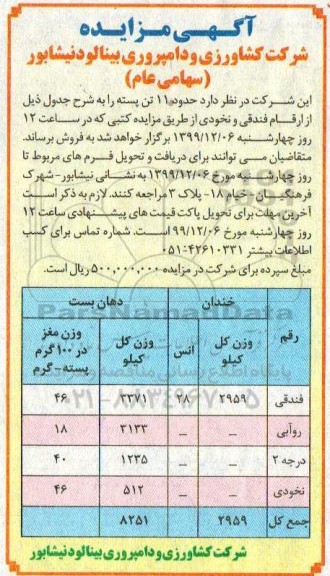 آگهی مزایده
شرکت کشاورزی و دامپروری بینالود نیشابور
(سهامی عام)
این شرکت در نظر دارد حدود ۱۱ تن پسته را به شرح جدول ذیل
از ارقام فندقی و نخودی از طریق مزایده کتبی که در ساعت ۱۲
روز چهارشنبه ۱۳۹۹/۱۲/۰۶ برگزار خواهد شد به فروش برساند.
متقاضیان می توانند برای دریافت و تحویل فرم های مربوط تا
روز چهارشنبه مورخ ۱۳۹۹/۱۲/۰۶ به نشانی نیشابور- شهرک
فرهنگیان - خیام ۱۸- پلاک ۳ مراجعه کنند. لازم به ذکر است
آخرین مهلت برای تحویل پاکت قیمت های پیشنهادی ساعت ۱۲
روز چهارشنبه مورخ ۹۹/۱۲/۰۶ است. شماره تماس برای کسب
اطلاعات بیشتر ۴۲۶۱۰۳۳۱-۰۵۱
مبلغ سپرده برای شرکت در مزایده ۵۰۰,۰۰۰,۰۰۰ ریال است.
رقم خندان دهان بست
وزن کل کیلو انس وزن کل کیلو وزن مغز در ۱۰۰ گرم پسته-گرم
فندقی ۲۹۵۹ ۲۸ ۳۳۷۱ ۴۶
روآبی _ _ ۳۱۳۳ ۱۸
درجه ۲ _ _ ۱۲۳۵ ۴۰
نخودی _ _ ۵۱۲ ۴۶
جمع کل ۲۹۵۹ ۸۲۵۱
شرکت کشاورزی و دامپروری بینالود نیشابور
ParsNamadData
۰۲۱-۸۸۳۴۹۶۷۰-۵